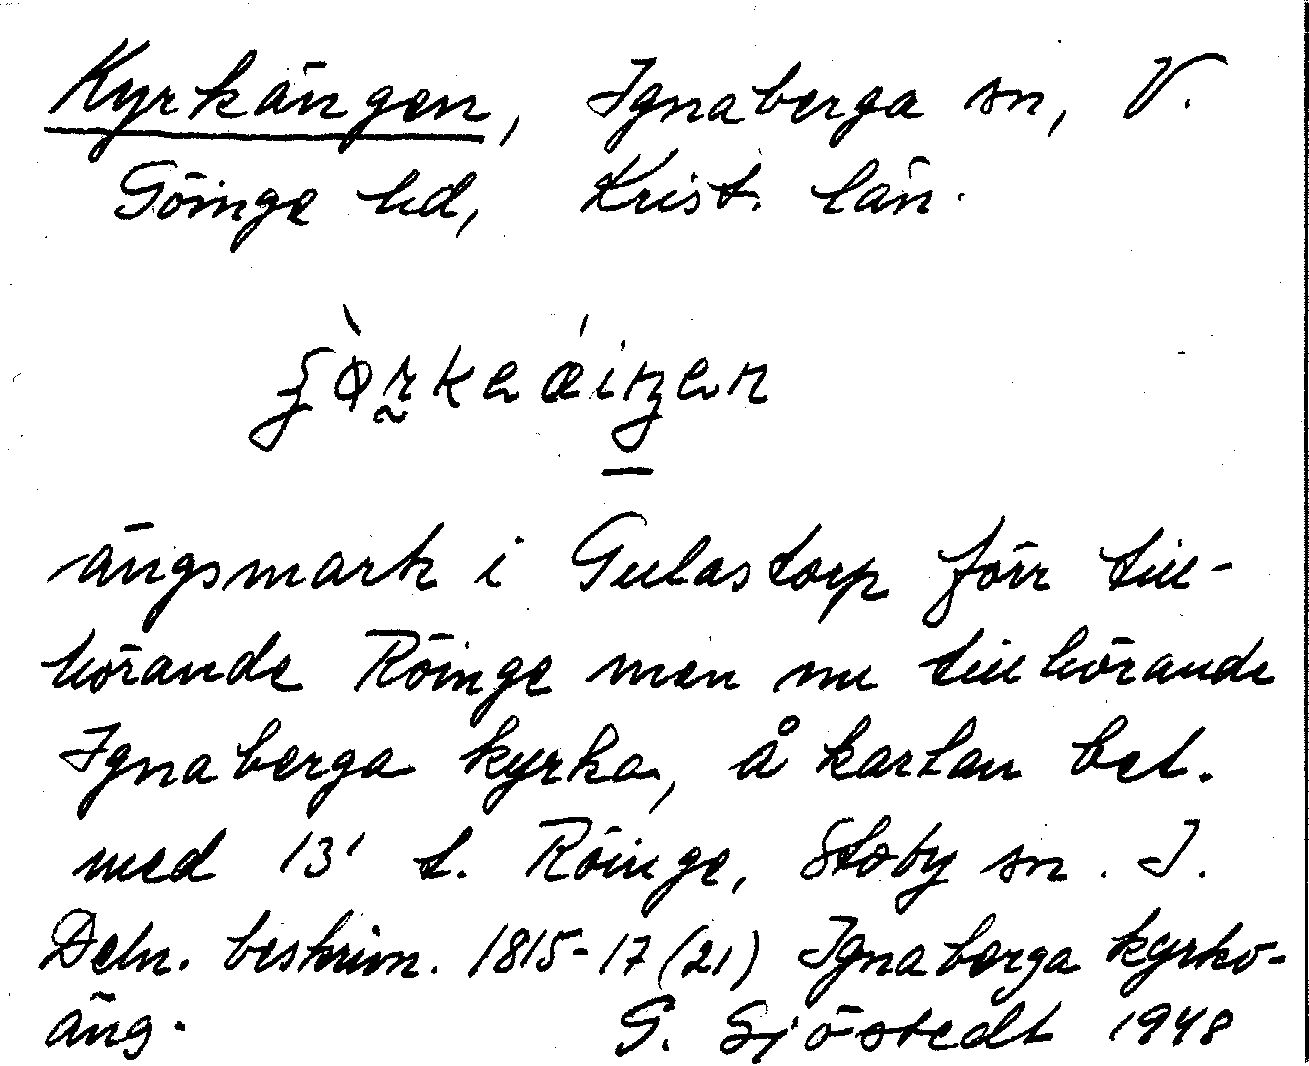 Kyrkängen, Ignaberga sn, V.
Göinge hd, Krist. län.
ängsmark i Gulastorp förr till-
hörande Röinge men nu tillhörande
Ignaberga kyrka, å kartan bet.
med 13' t. Röinge, Stoby sn. I.
Deln. beskrivn. 1815-17 (21) Ignaberga kyrko-
äng. G. Sjöstedt 1948